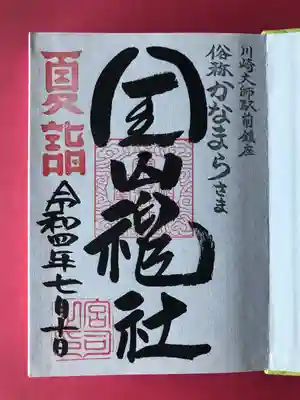 川崎大師駅前鎮座
俗称かなまらさま
金山神社
夏詣
令和四年七月十日